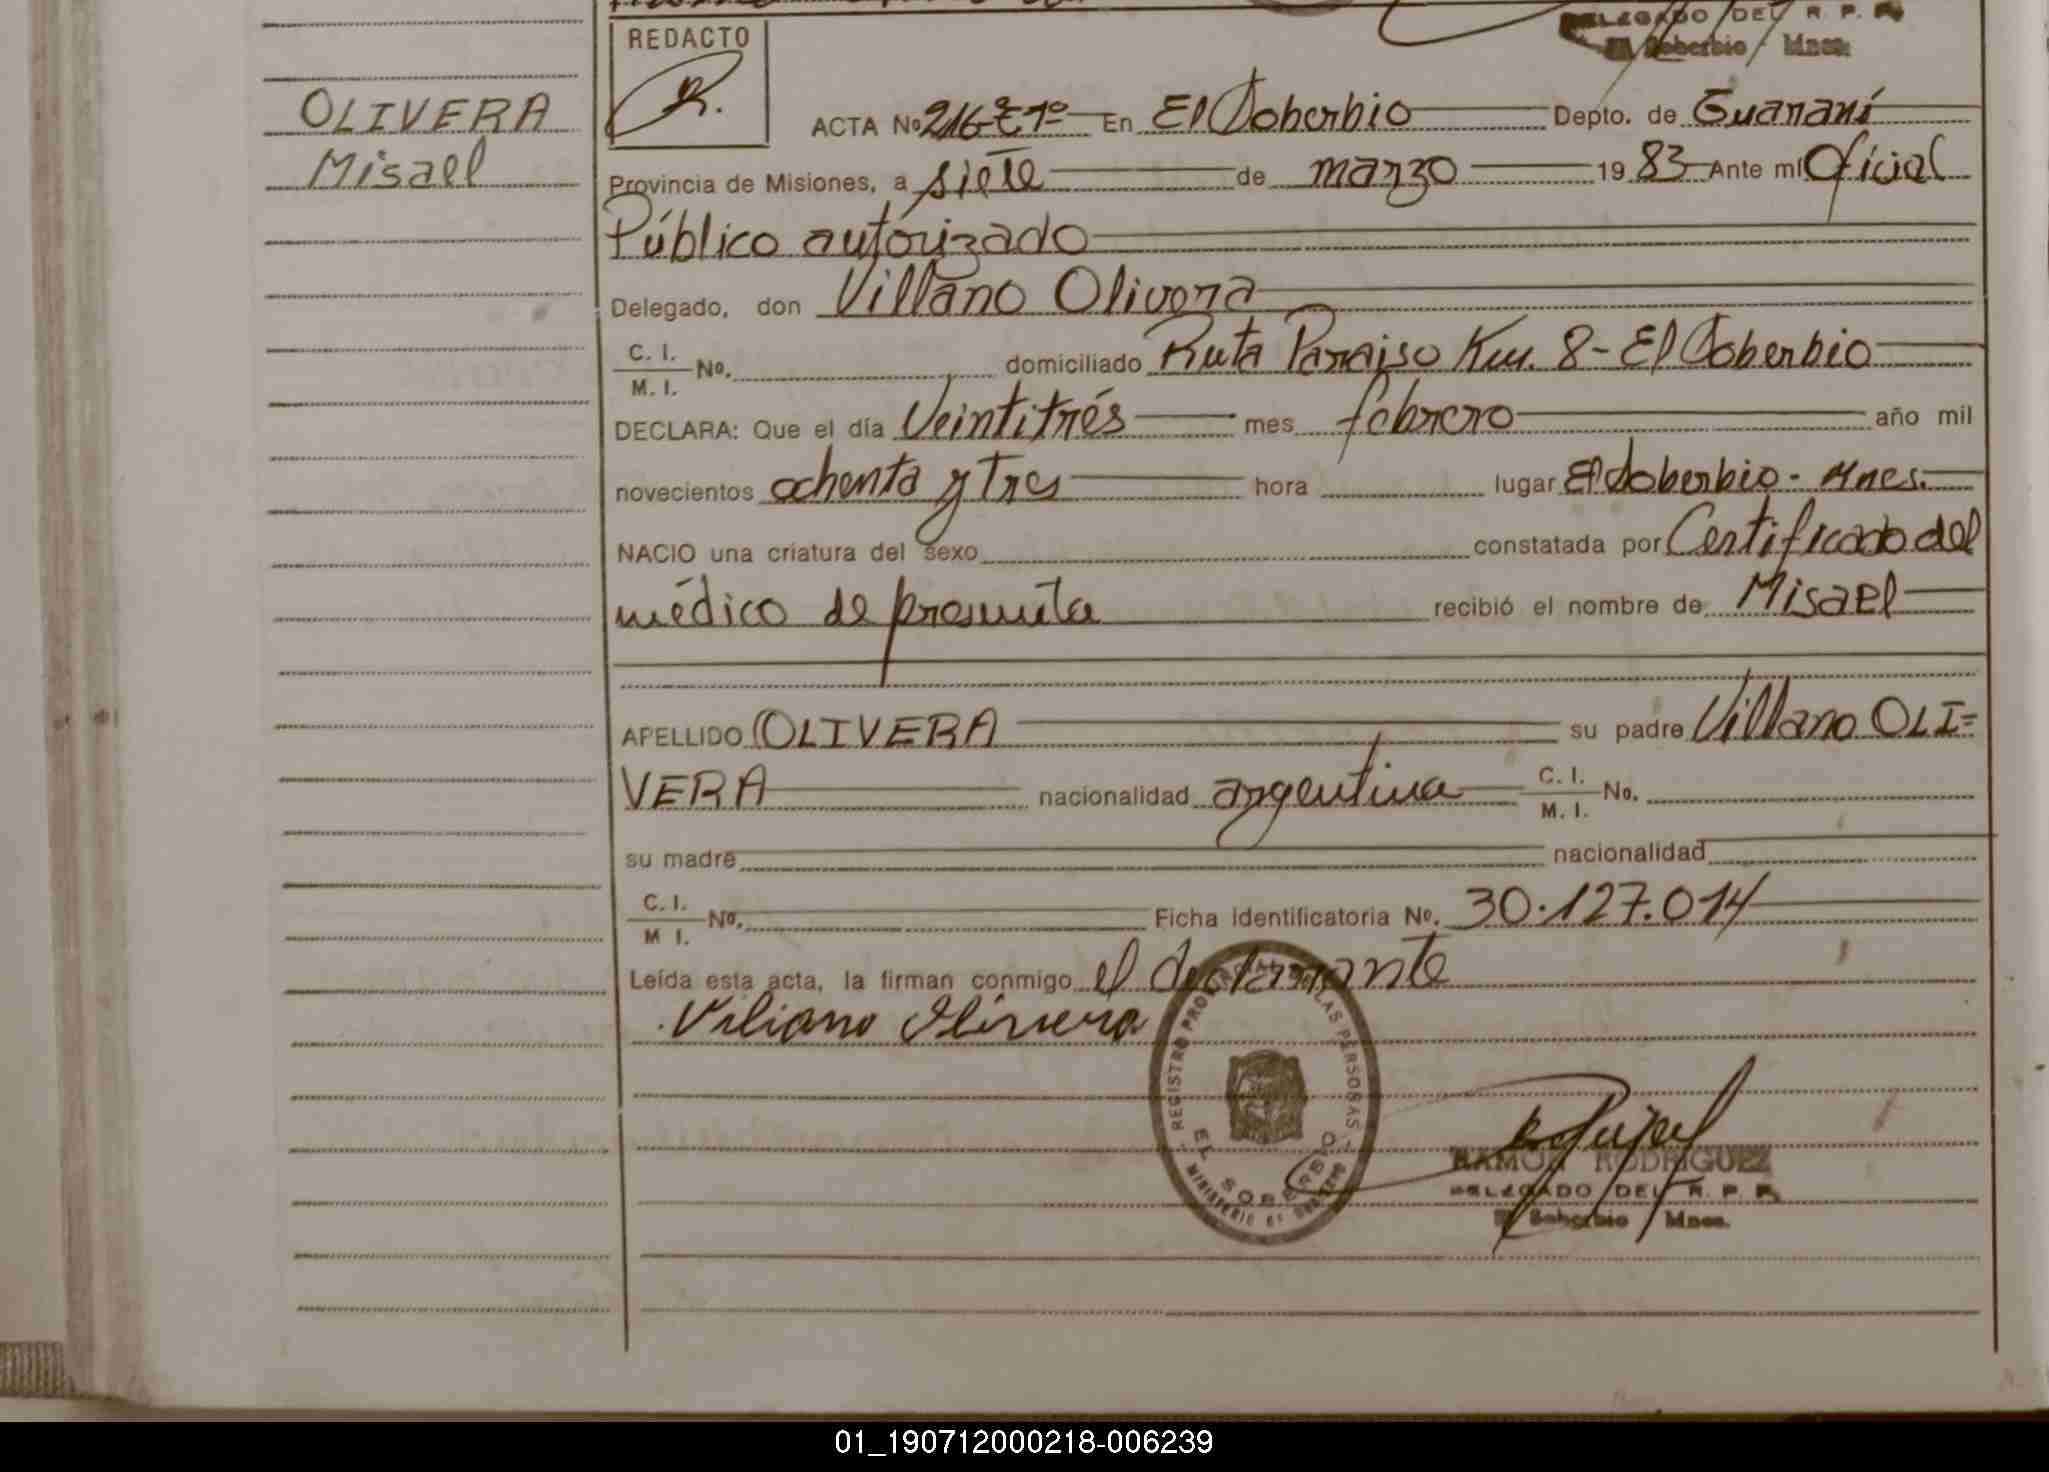 DELEGADO DEL R. P. P.
El Soberbio - Mnes.
REDACTO
R.
OLIVERA
Misael
ACTA No 216 T 1º En El Soberbio Depto. de Guaraní
Provincia de Misiones, a siete de marzo 19 83 Ante mí Oficial
Público autorizado
Delegado, don Villano Olivera
C. I.
M. I. No. domiciliado Ruta Paraiso Km. 8 - El Soberbio
DECLARA: Que el día Veintitrés mes febrero año mil
novecientos ochenta y Tres hora lugar El Soberbio - Mnes.
NACIO una criatura del sexo constatada por Certificado del
médico de recibió el nombre de Misael
APELLIDO OLIVERA su padre Villano OLI=
VERA nacionalidad argentina C. I.
M. I. No.
su madre nacionalidad
C. I.
M I. No. Ficha Identificatoria No. 30.127.014
Leída esta acta, la firman conmigo el declarante
Viliano Olivera
REGISTRO PROVINCIAL DE LAS PERSONAS
EL SOBERBIO
MINISTERIO DE GOBIERNO
RAMON RODRIGUEZ
DELEGADO DEL R. P. P.
El Soberbio Mnes.
01_190712000218-006239